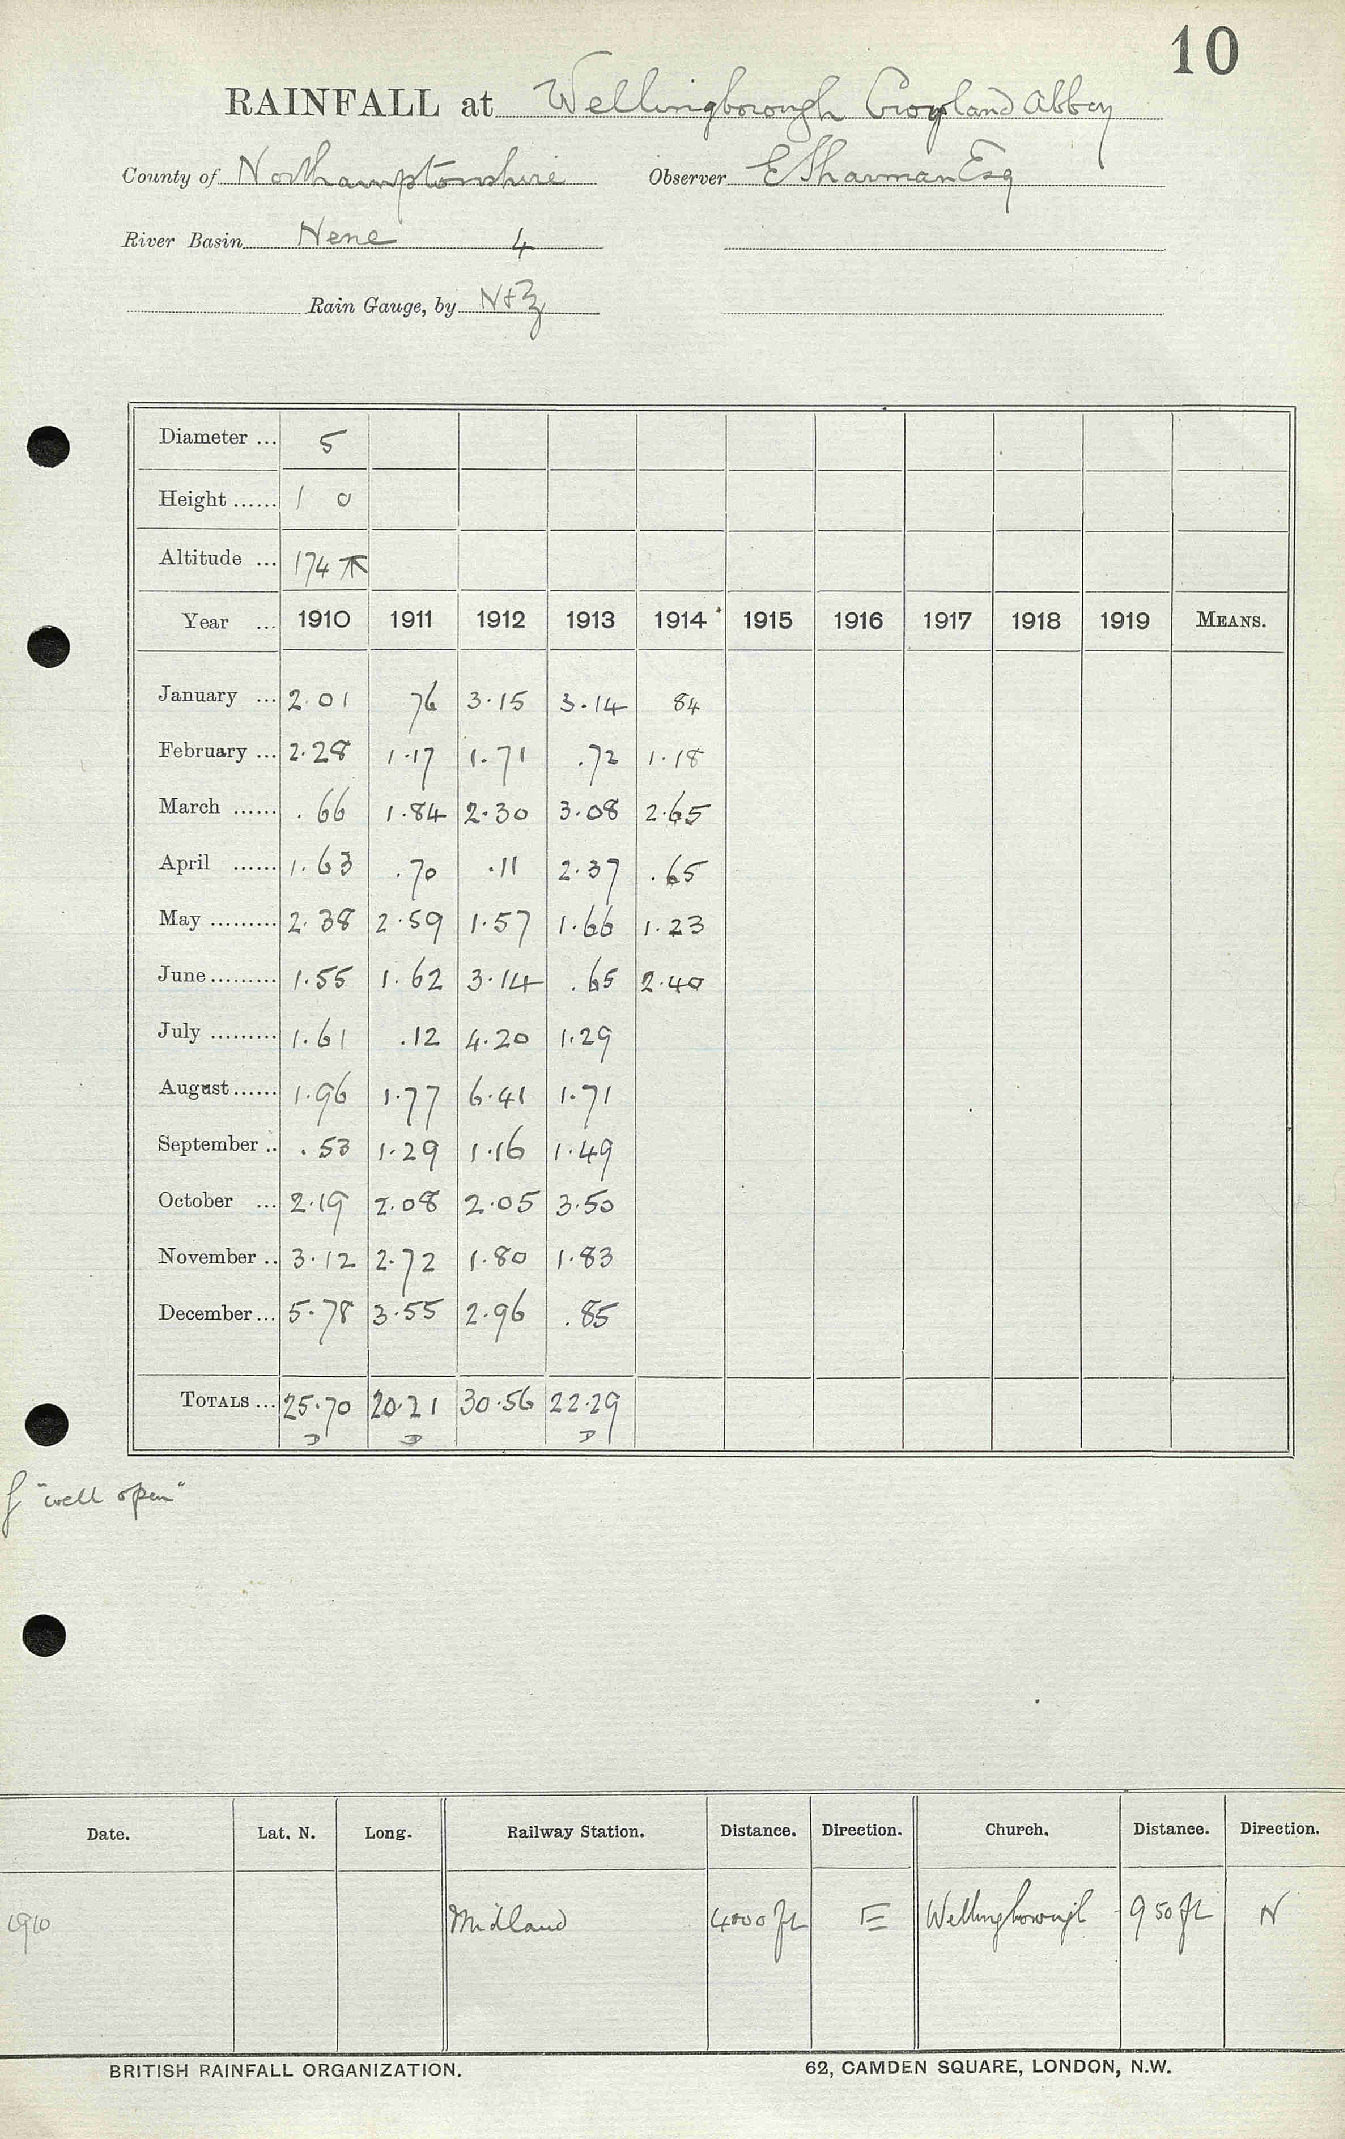 10
RAINFALL at Wellingborough Croyland Abbey
County of Northamptonshire Observer E Sharman Esq
River Basin Nene 4
Rain Gauge, by N+Z
Diameter ... 5
Height ...... 1 0
Altitude ... 174
Year ... 1910 1911 1912 1913 1914 1915 1916 1917 1918 1919 MEANS.
January ... 2.01 76 3.15 3.14 84
February ... 2.28 1.17 1.71 .72 1.18
March ...... .66 1.84 2.30 3.08 2.65
April ...... 1.63 .70 .11 2.37 .65
May ......... 2.38 2.59 1.57 1.66 1.23
June ......... 1.55 1.62 3.14 .65 2.40
July ......... 1.61 .12 4.20 1.29
August ...... 1.96 1.77 6.41 1.71
September .. .53 1.29 1.16 1.49
October ... 2.19 2.08 2.05 3.50
November .. 3.12 2.72 1.80 1.83
December ... 5.78 3.55 2.96 .85
TOTALS ... 25.70 20.21 30.56 22.29
D D D
"well open"
Date. Lat. N. Long. Railway Station. Distance. Direction. Church. Distance. Direction.
1910 Midland 4000 ft E Wellingborough 950 ft N
BRITISH RAINFALL ORGANIZATION. 62, CAMDEN SQUARE, LONDON, N.W.